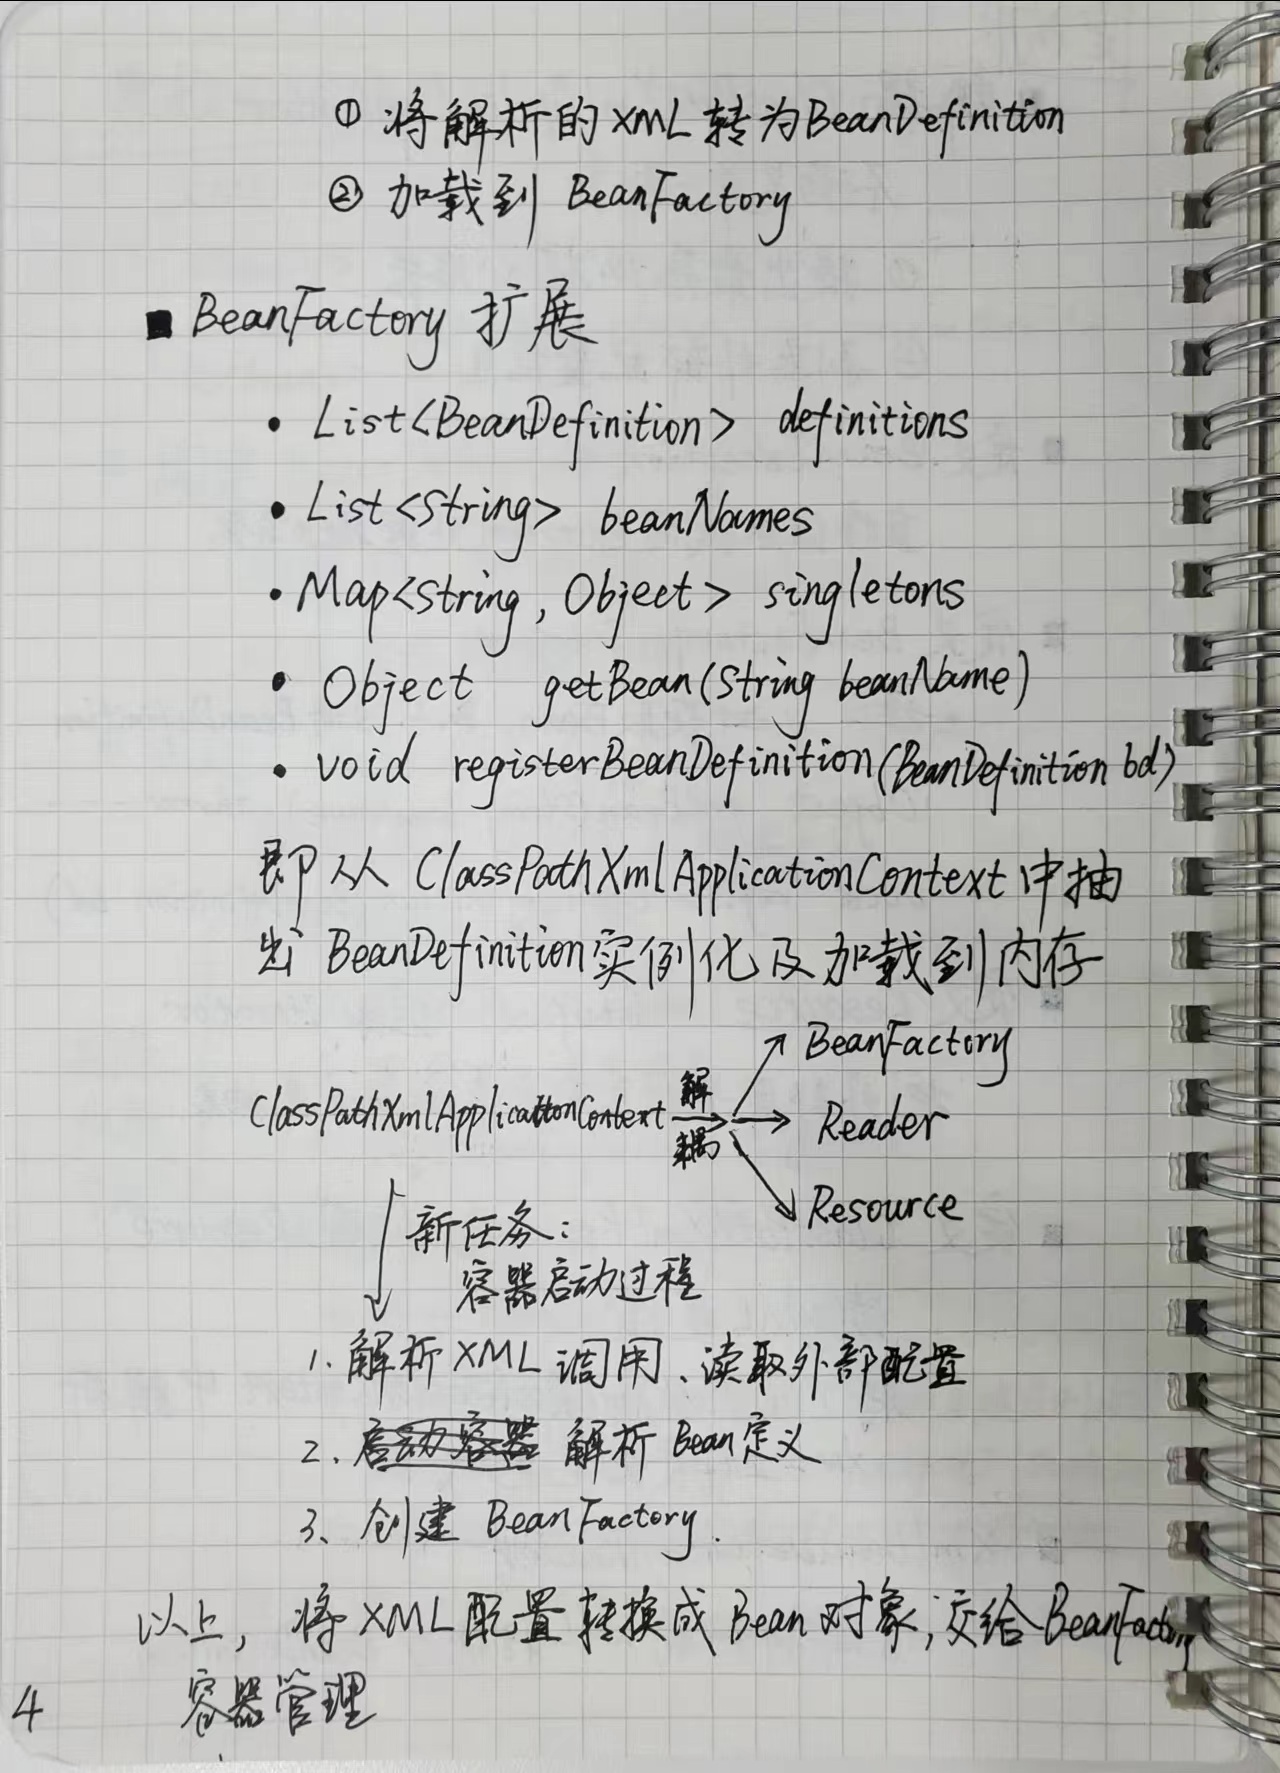 ① 将解析的XML转为BeanDefinition
② 加载到 BeanFactory
■ BeanFactory 扩展
• List<BeanDefinition> definitions
• List<String> beanNames
• Map<String, Object> singletons
• Object getBean(String beanName)
• void registerBeanDefinition(BeanDefinition bd)
即从 ClassPathXmlApplicationContext中抽
出 BeanDefinition实例化及加载到内存
BeanFactory
ClassPathXmlApplicationContext 解耦 Reader
Resource
新任务:
容器启动过程
1. 解析XML调用、读取外部配置
2. 启动容器 解析 Bean定义
3、创建 BeanFactory.
以上, 将XML配置转换成Bean对象,交给BeanFactory
容器管理
4